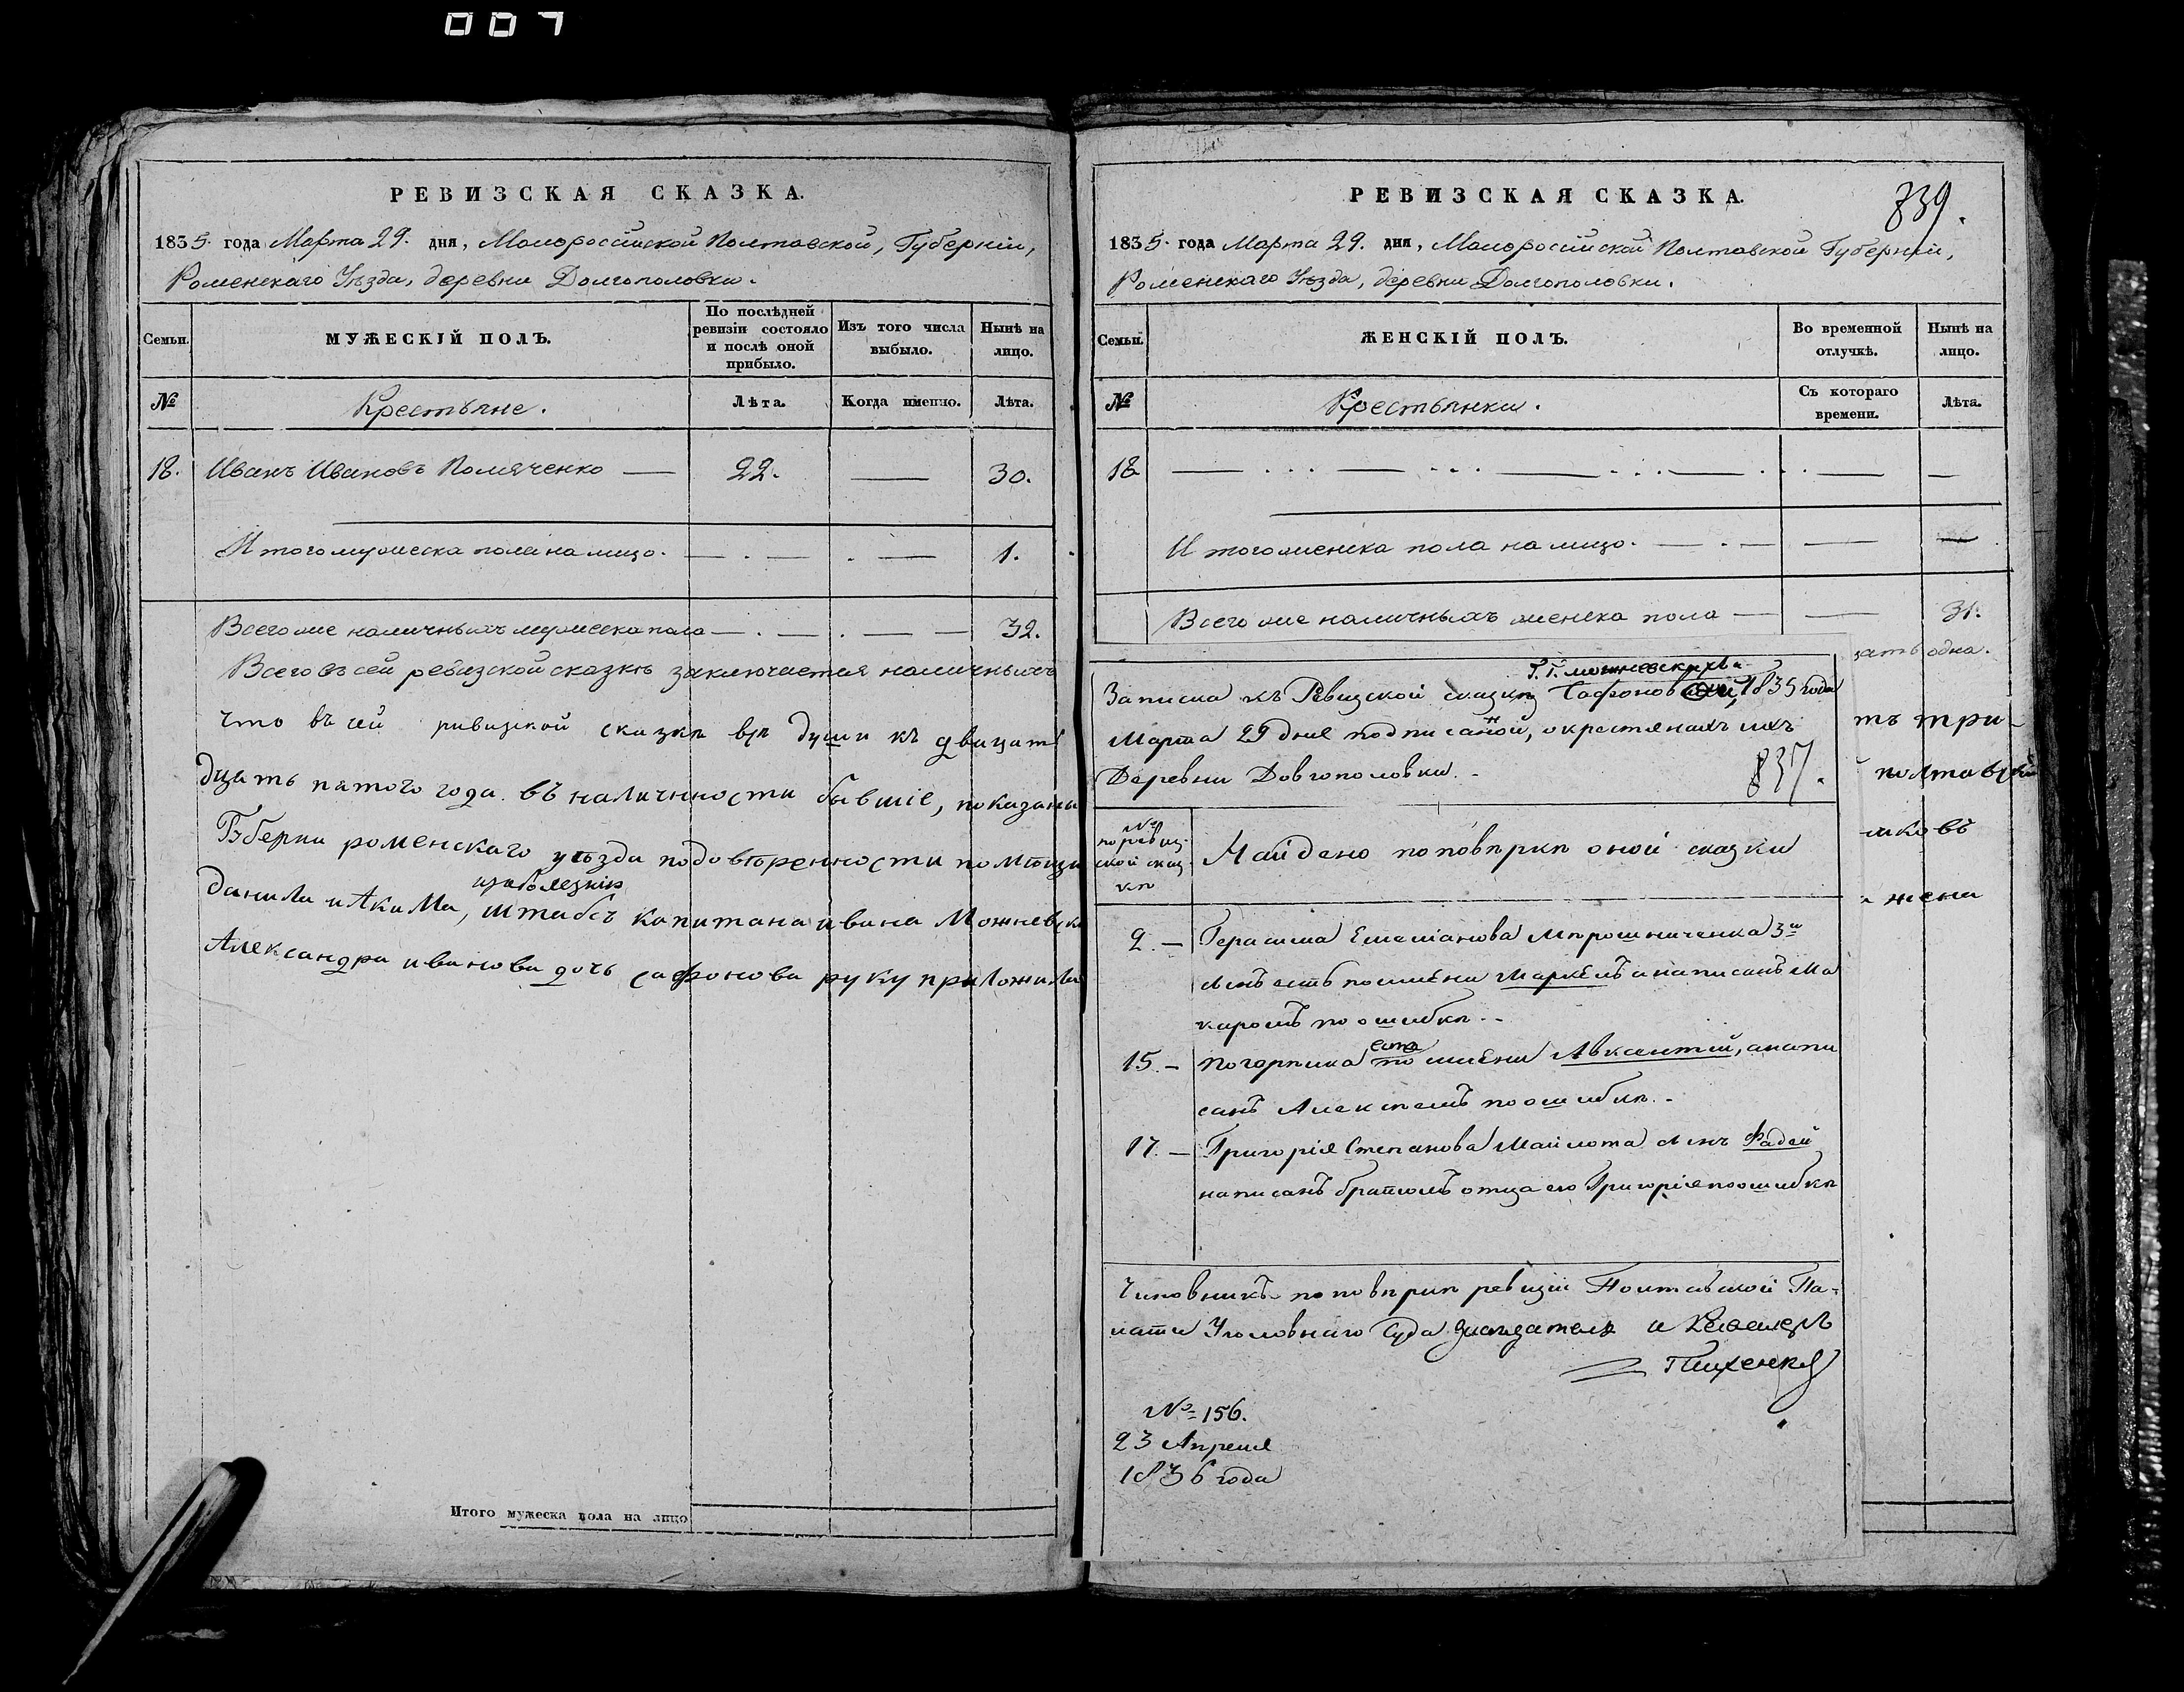 007
РЕВИЗСКАЯ СКАЗКА.
1835. года Марта 29. дня, Малоросійской Полтавской, Губерніи,
Роменскаго Уѣзда, деревни Долгополовки.
Семьи.
МУЖЕСКІЙ ПОЛЪ.
По послѣдней ревизіи состояло и послѣ оной прибыло.
Изъ того числа выбыло.
Нынѣ на лицо.
№
Крестьяне.
Лѣта.
Когда именно.
Лѣта.
18. Иванъ Ивановъ — 22. — 30.
Итого мужеска пола на лицо. — . — . — 1.
Всего же наличныхъ мужеска пола — . — . — — 32.
Всего въ сей ревизской сказкѣ заключается наличныхъ
что въ сей ривизской сказкѣ всѣ души къ двацать
дцать пятого года въ наличности бывшіе, показаны
Губерни роменскаго уѣзда по довѣренности помѣщи
изъ болезніи
данила и Акима, штабсъ капитана ивана
Александра иванова дочь сафонова руку приложила
Итого мужеска пола на лицо
РЕВИЗСКАЯ СКАЗКА.
839.
1835. года Марта 29. дня, Малоросійской Полтавской Губерніи,
Роменскаго Уѣзда, деревни Долгополовки.
Семьи.
ЖЕНСКІЙ ПОЛЪ.
Во временной отлучкѣ.
Нынѣ на лицо.
№
Крестьянки.
Съ котораго времени.
Лѣта.
18
Итого женска пола на лицо. — . — —
Всего же наличныхъ женска пола — — 31.
цать одна.
тъ три-
полтавской
иковъ
жена
Г. Г.
Записка къ Ревизской сказкѣ Сафоновой, 1835 года
Марта 29 дня подписанной, о крестянахъ ихъ
Деревни Довгополовки. -
837.
№ по ревизской сказкѣ
Найдено по повѣркѣ оной сказки
2. — Герасима Емельянова Мирошниченка 3й
сынъ есть по имени Маркелъ а написанъ Ма
каромъ по ошибкѣ. -
есть
15. — по имени Авксентій, а напи
санъ Алексѣемъ по ошибкѣ. -
17. — Григорія Степанова сынъ Фадей
написанъ братомъ отца его Григорія по ошибкѣ
Чиновникъ по повѣркѣ ревизіи Полтавской Па-
латы Уголовнаго Суда засѣдатель и Кавалеръ
№ 156.
23 Апреля
1836 года